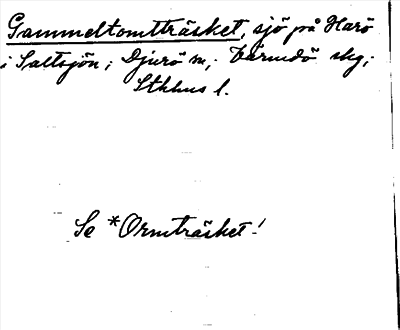 Gammeltomtträsket, sjö på Harö
i Saltsjön; Djurö sn, Värmdö skg,
Sthlms l.
Se *Ormträsket!